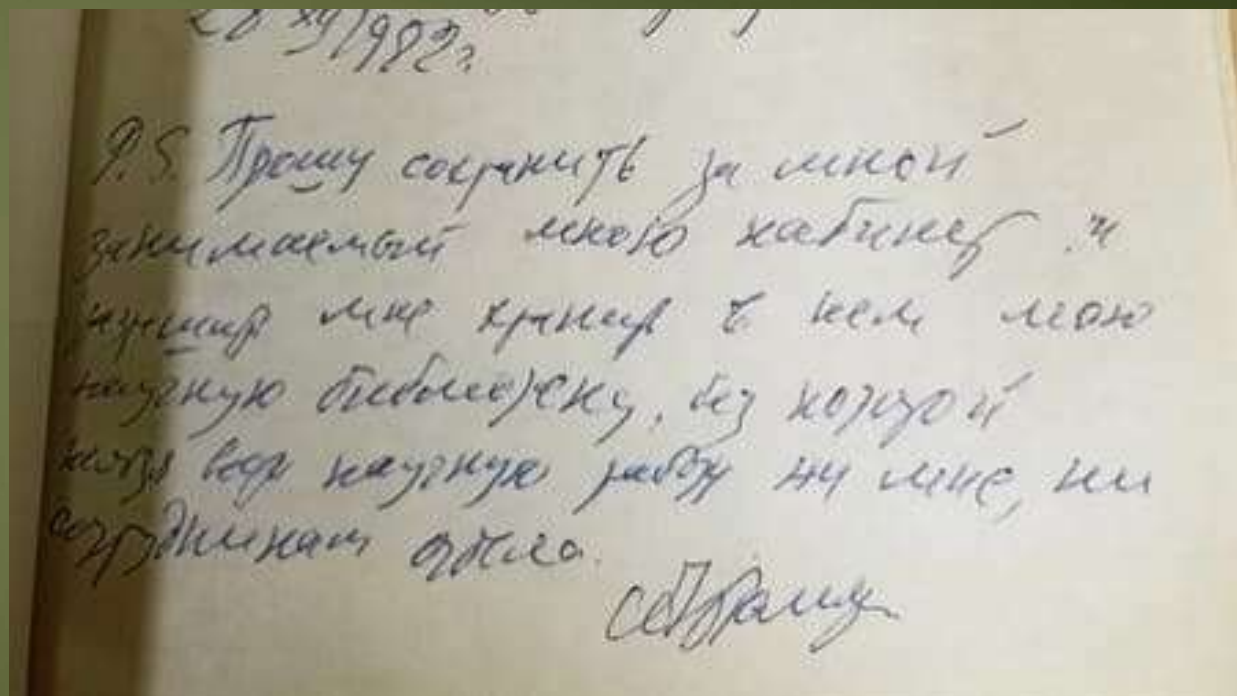 28 XII 1982 г.
P.S. Прошу сохранить за мной
занимаемый мною кабинет и
мне хранить в нем мою
научную библиотеку, без которой
нельзя вести научную работу ни мне, ни
сотрудникам отдела.